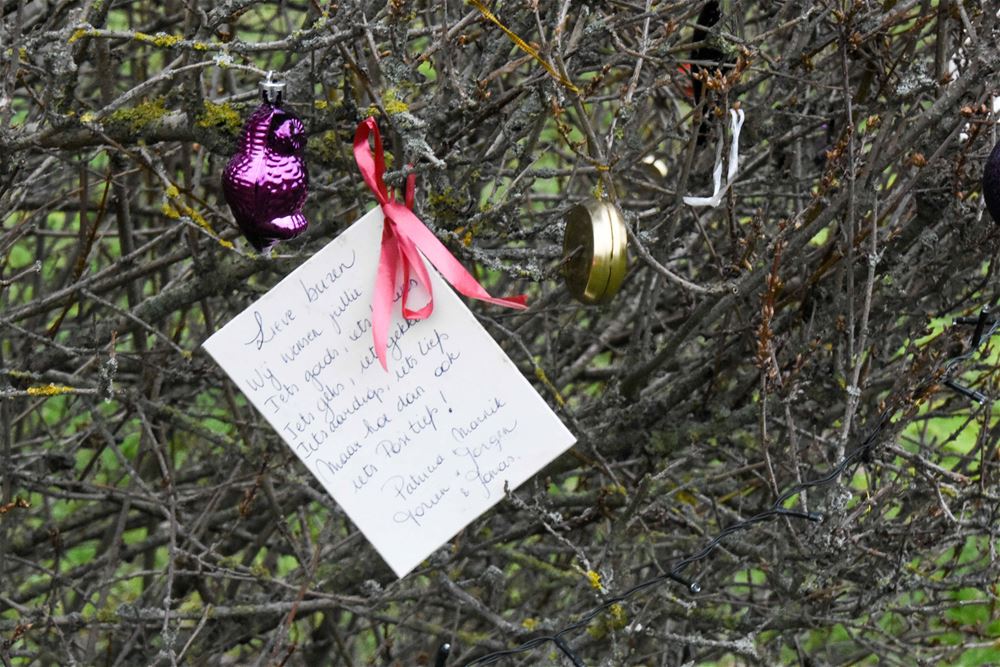 Lieve buren
Wij wensen jullie
Iets goeds, iets
Iets geks, iets gekkers
Iets aardigs, iets liefs
Maar hoe dan ook
iets Positief!
Patricia Marnik
Jorien & Jorgen
& Jonas.